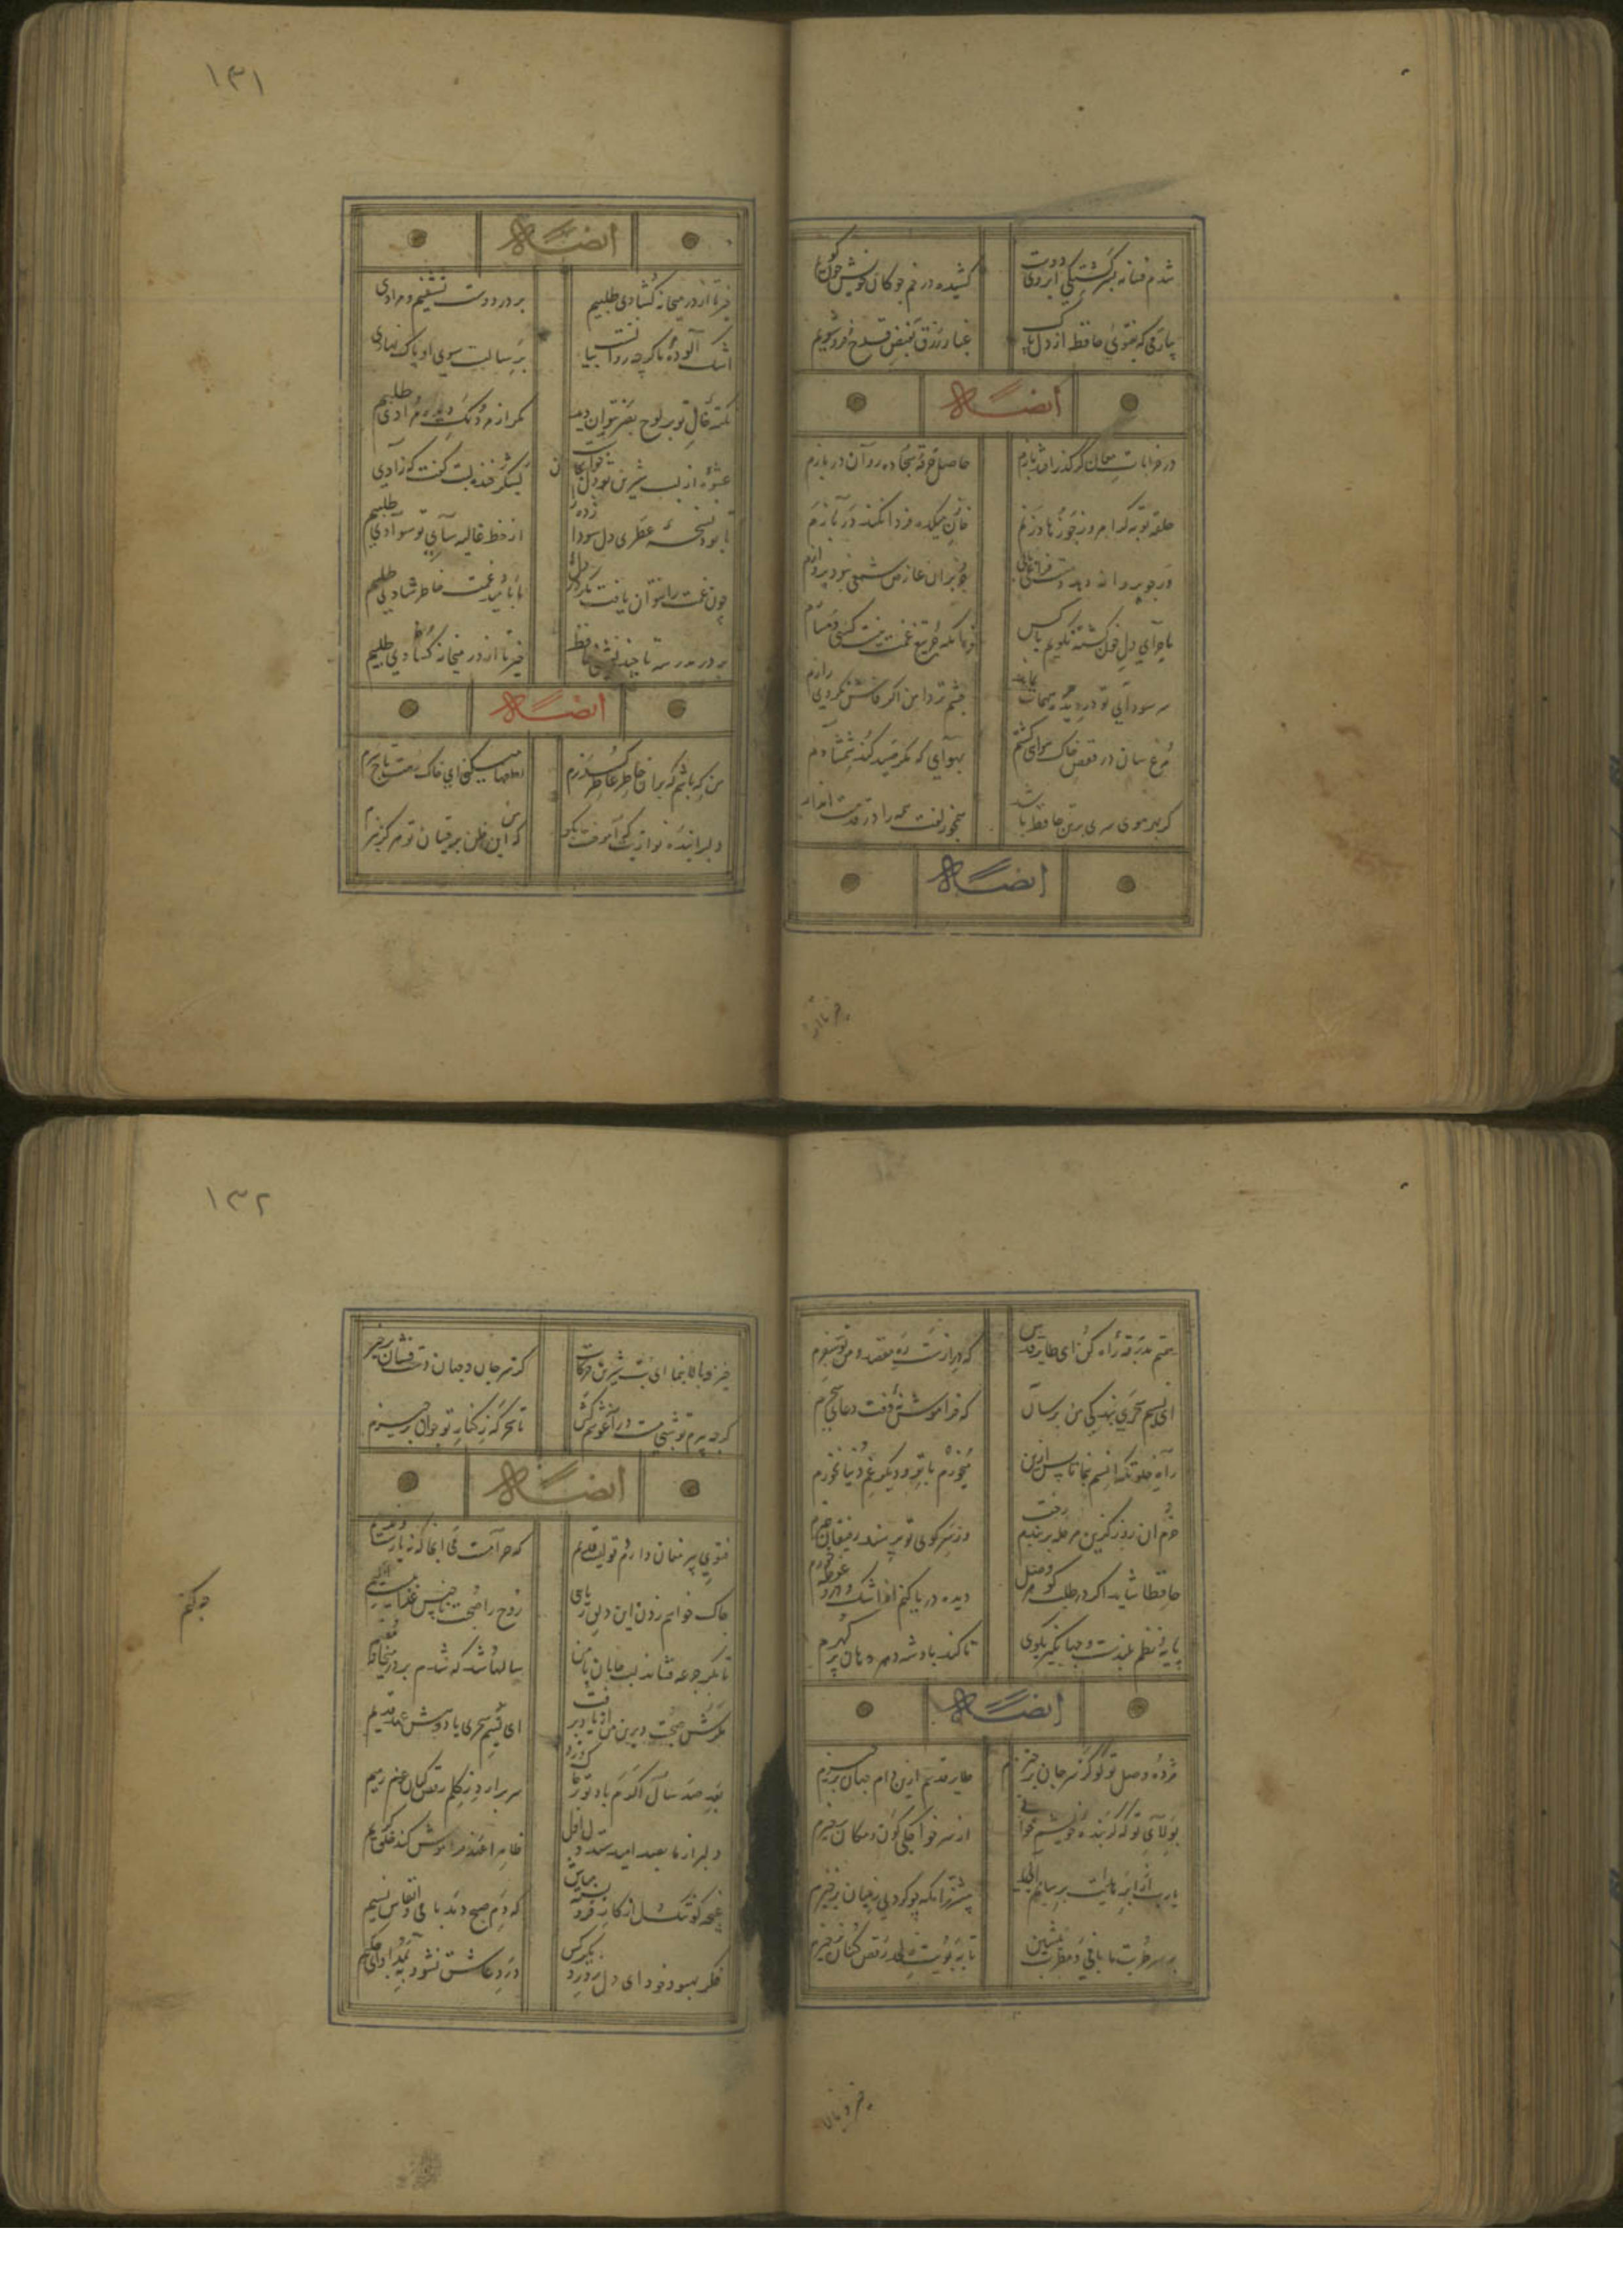 شدم فسانه بسرگشتگی ابروی دوست
کشیده در خم چوکان خویش چون گویم
بیار می که بفتوی حافظ از دل پاک
غبار زرق بفیض قدح فرو شویم
ایضاً له
در خرابات مغان گر گذر افتد بازم
حاصل خرقه و سجاده روان دربازم
حلقه توبه گر امروز چو زهاد زنم
خازن میکده فردا نکند در بازم
ور چو پروانه دهد دست فراغ بالی
جز بران عارض شمعی نبود پروازم
ماجرای دل خون گشته نگویم با کس
زانکه جز تیغ غمت نیست کسی دمسازم
سر سودای تو در سینه بماند پنهان
چشم تردامن اگر فاش نکردی رازم
مرغ سان در قفص خاک هوای گشتم
بهوایی که مگر صید کند شهبازم
گر بهر موی سری بر تن حافظ باشد
همچو زلفت همه را در قدمت اندازم
ایضاً له
خیز تا از
۱۳۱
ایضاً له
خیز تا از در میخانه گشادی طلبیم
بر در دوست نشینیم و مرادی
اشک آلوده ما گرچه روانست بیا
برسالت سوی او پاک نهادی
نقطه خال تو بر لوح بصر نتوان زد
مگر از مردمک دیده مدادی طلبیم
عشوه از لب شیرین تو دل خواست بجان
بشکر خنده لبت گفت که زادی
تا بود نسخه عطری دل سودا زده را
از خط غالیه سای تو سوادی طلبیم
چون غمت را نتوان یافت مگر در دل شاد
ما بامید غمت خاطر شادی طلبیم
بر در مدرسه تا چند نشینی حافظ
خیز تا از در میخانه گشادی طلبیم
ایضاً له
من که باشم که بران خاطر عاطر گذرم
لطفها میکنی ای خاک درت تاج سرم
دلبرا بنده نوازیت که آموخت بگو
که من این ظن برقیبان تو هرگز نبرم
همتم بدرقه راه کن ای طایر قدس
که درازست ره مقصد و من نوسفرم
ای نسیم سحری بندگی من برسان
که فراموش مکن وقت دعای سحرم
راه خلوتگه خاصم بنما تا پس ازین
می خورم با تو و دیگر غم دنیا نخورم
خرم ان روز کزین مرحله بربندم رخت
وز سر کوی تو پرسند رفیقان خبرم
حافظا شاید اگر در طلب گوهر وصل
دیده دریا کنم از اشک و درو غوطه خورم
پایه نظم بلندست و جهانگیر بگوی
تا کند پادشه بحر دهان پر گهرم
ایضاً له
مژده وصل تو کو کز سر جان برخیزم
طایر قدسم از دام جهان برخیزم
بولای تو که گر بنده خویشم خوانی
از سر خواجگی کون و مکان برخیزم
یارب از ابر هدایت برسان بارانی
پیشتر زانکه چو گردی ز میان برخیزم
بر سر تربت ما با می و مطرب بنشین
تا ببویت ز لحد رقص کنان برخیزم
خیز و بالا
۱۳۲
خیز و بالا بنما ای بت شیرین حرکات
کز سر جان و جهان دست فشان برخیزم
گرچه پیرم تو شبی تنگ در آغوشم کش
تا سحرگه ز کنار تو جوان برخیزم
ایضاً له
فتوی پیر مغان دارم و قولیست قدیم
که حرامست می انجا که نه یارست و ندیم
چاک خواهم زدن این دلق ریایی
روح را صحبت ناجنس عذابیست الیم
تا مگر جرعه فشاند لب جانان بر من
سالها شد که شدم بر در میخانه مقیم
مگرش صحبت دیرین من از یاد برفت
ای نسیم سحری یاد دهش عهد قدیم
بعد صد سال اگرم باد تو بر خاک وزد
سر برارد ز گلم رقص کنان عظم رمیم
دلبر از ما بصد امید ستد اول دل
ظاهرا عهد فراموش نکند خلق کریم
غنچه گو تنگدل از کار فروبسته مباش
که دم صبح مدد یابی و انفاس نسیم
فکر بهبود خود ای دل ز در دیگر کن
درد عاشق نشود به بمداوای حکیم